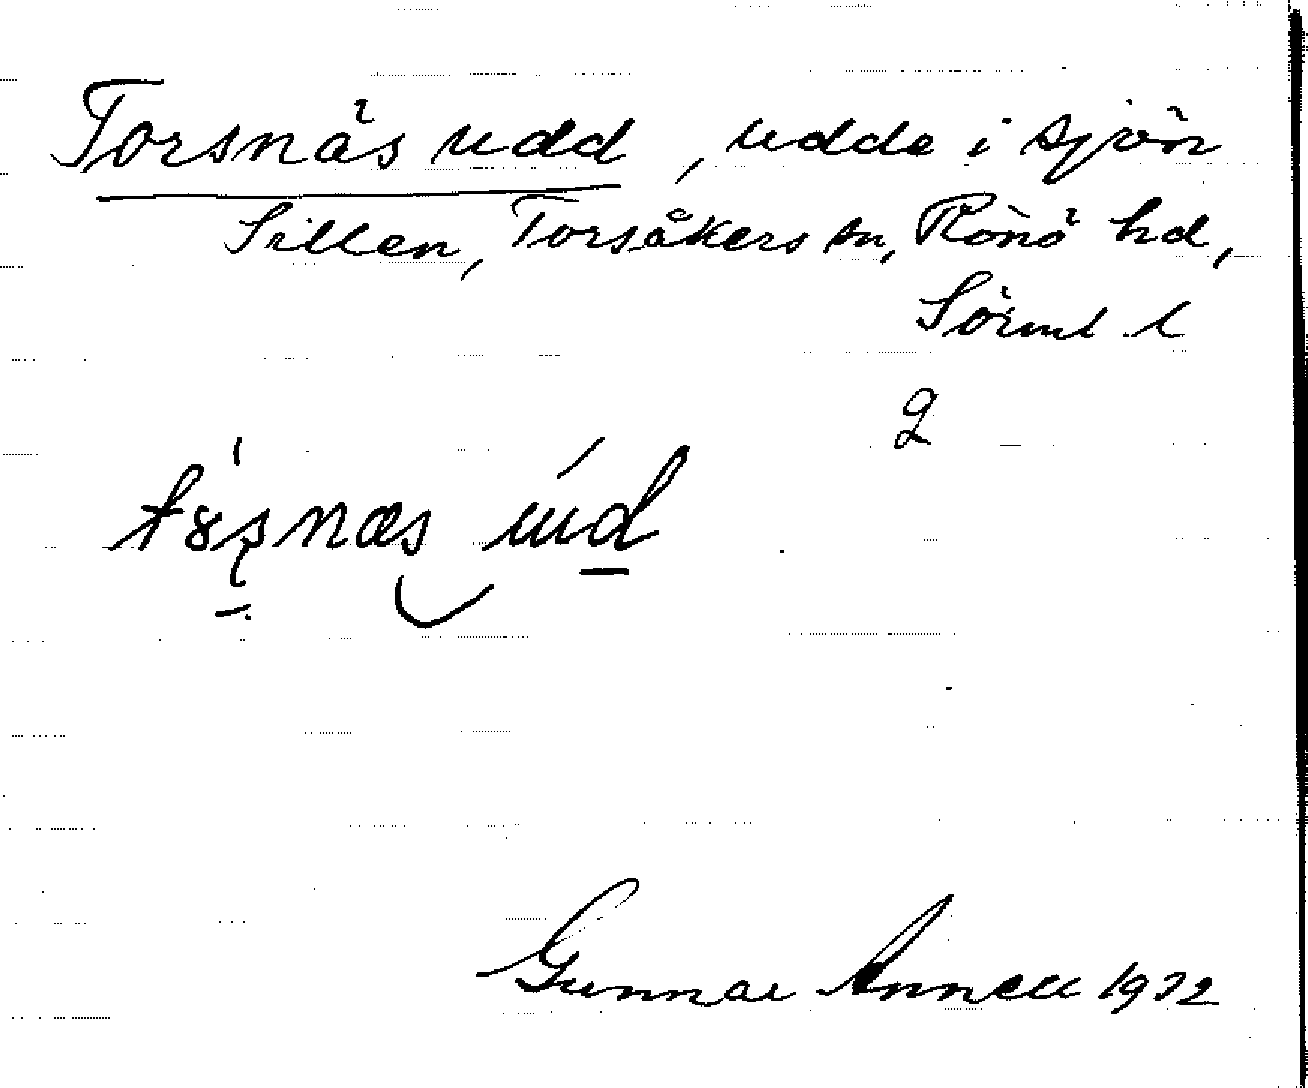 Torsnäs udd, udde i sjön
Sillen, Torsåkers sn, Rönö hd,
Sörml. l
Gunnar Annell 1932